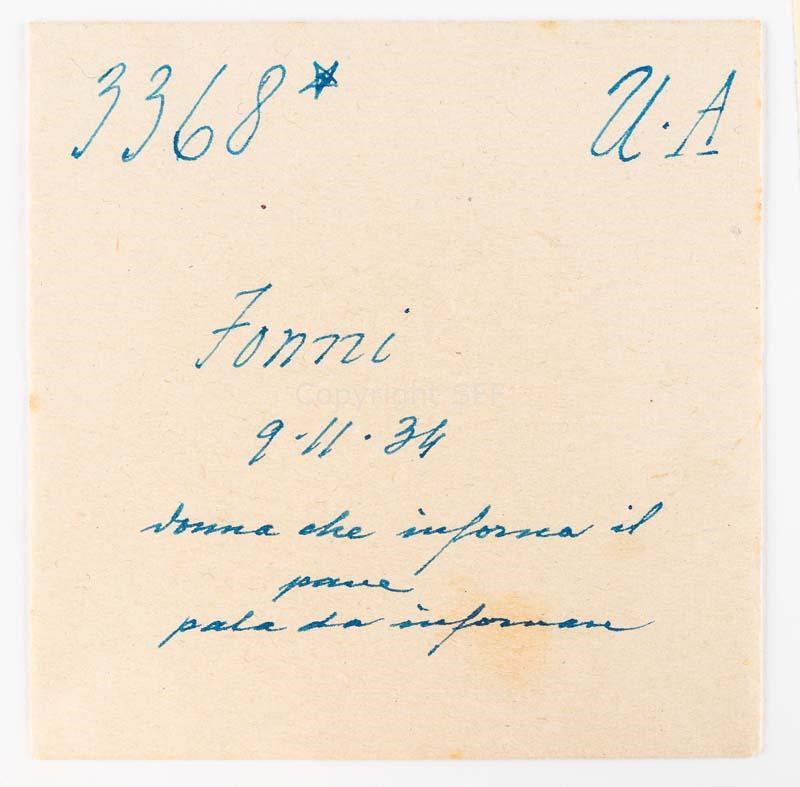 3368* U.A
Fonni
Copyright SFF
9.11.34
donna che inforna il
pane
pala da infornare